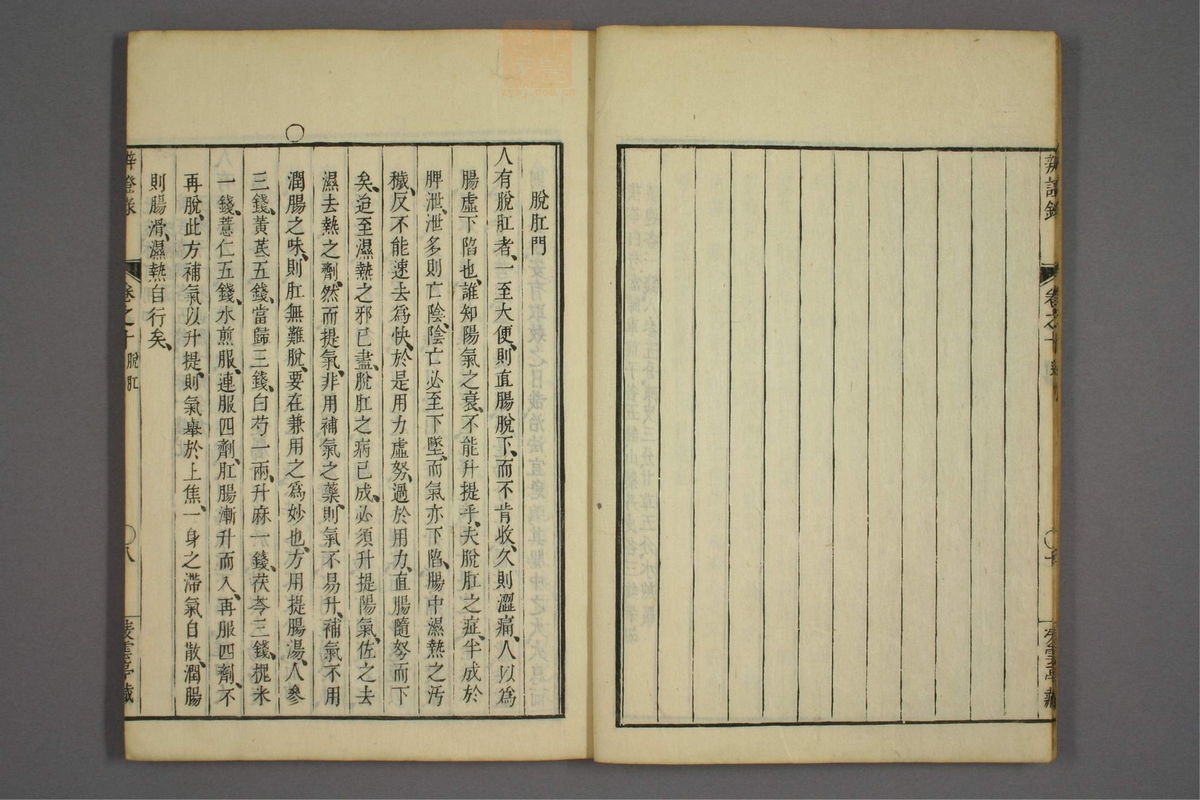 脫肛門
人有脫肛者、一至大便、則直腸脫下、而不肯收、久則澀痛、人以爲
腸虛下陷也、誰知陽氣之衰、不能升提乎、夫脫肛之症、半成於
脾泄、泄多則亡陰、陰亡必至下墜、而氣亦下陷、腸中濕熱之汚
穢、反不能速去爲快、於是用力虛努、過於用力、直腸隨努而下
矣、迨至濕熱之邪已盡、脫肛之病已成、必須升提陽氣、佐之去
濕去熱之劑、然而提氣、非用補氣之藥、則氣不易升、補氣不用
○潤腸之味、則肛無難脫、要在兼用之爲妙也、方用提腸湯、人參
三錢、黃芪五錢、當歸三錢、白芍一兩、升麻一錢、茯苓三錢、槐米
一錢、薏仁五錢、水煎服、連服四劑、肛腸漸升而入、再服四劑、不
再脫、此方補氣以升提、則氣舉於上焦、一身之滯氣自散、潤腸
則腸滑、濕熱自行矣、
卷之十 脫肛
○八